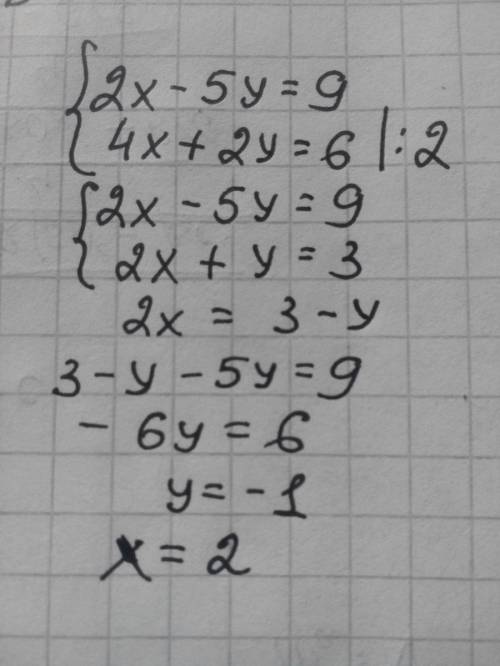 {2x - 5y = 9
4x + 2y = 6 | : 2
{2x - 5y = 9
2x + y = 3
2x = 3 - y
3 - y - 5y = 9
- 6y = 6
y = - 1
x = 2